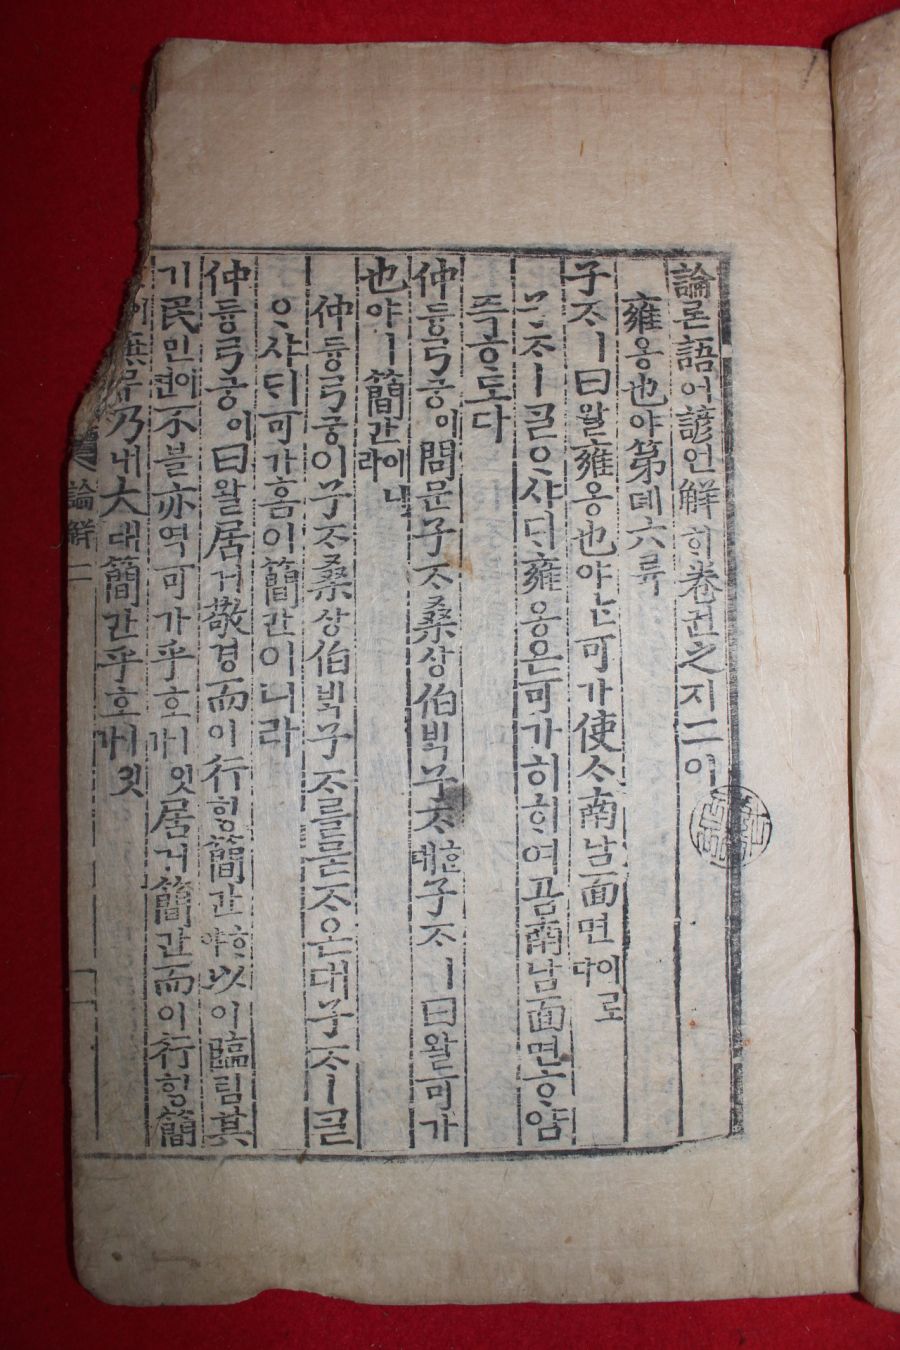 論론語어諺언解ᄒᆡ卷권之지二이
雍옹也야第뎨六륙
子ᄌᆞㅣ曰왈雍옹也야ᄂᆞᆫ可가使ᄉᆞ南남面면이로다
子ᄌᆞㅣᄀᆞᆯᄋᆞ샤ᄃᆡ雍옹은可가히ᄒᆞ여곰南남面면ᄒᆞ얌
즉ᄒᆞ도다
仲듕弓궁이問문子ᄌᆞ桑상伯ᄇᆡᆨ子ᄌᆞᄒᆞᆫ대子ᄌᆞㅣ曰왈可가
也야ㅣ簡간이니라
仲듕弓궁이子ᄌᆞ桑상伯ᄇᆡᆨ子ᄌᆞ를묻ᄌᆞ온대子ᄌᆞㅣᄀᆞᆯ
ᄋᆞ샤ᄃᆡ可가홈이簡간이니라
仲듕弓궁이曰왈居거敬경而이行ᄒᆡᆼ簡간ᄒᆞ야以이臨림其
기民민이면不블亦역可가乎호ㅣ잇가居거簡간而이行ᄒᆡᆼ簡
無무乃내大대簡간乎호ㅣ잇가
論解二